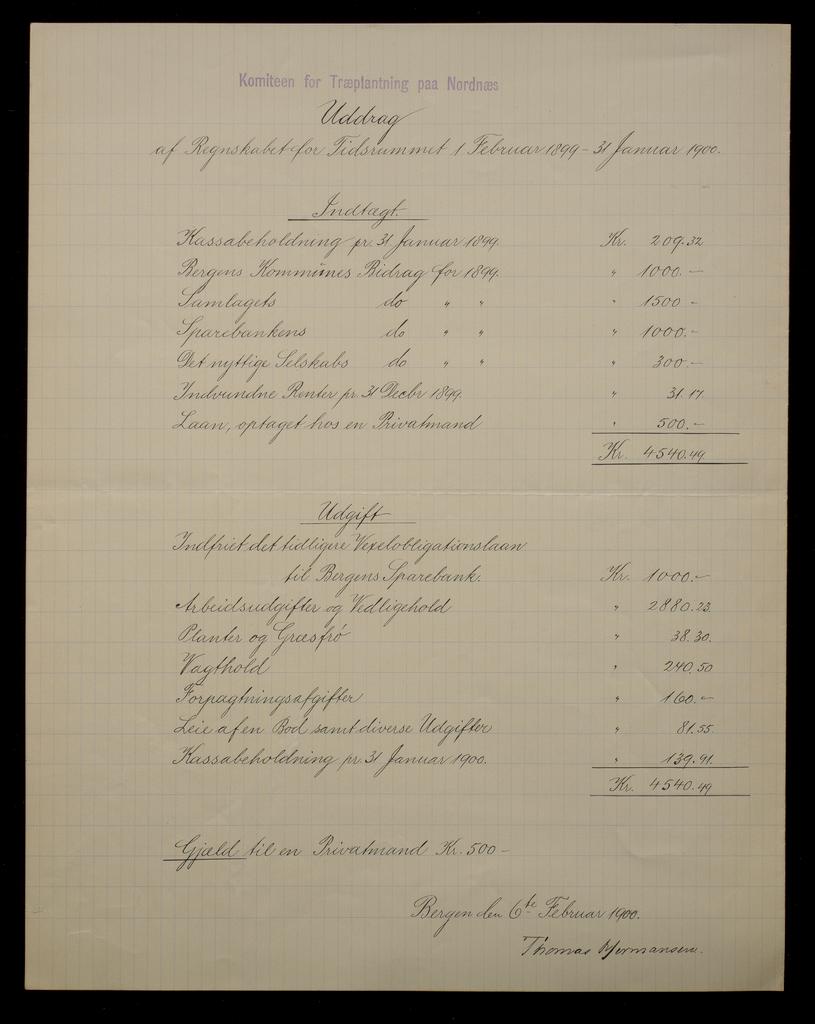 Komiteen for Træplantning paa Nordnæs
Uddrag
af Regnskabet for Tidsrummet 1 Februar 1899 - 31 Januar 1900.
Indtægt.
Kassabeholdning pr. 31 Januar 1899. Kr. 209.32
Bergens Kommunes Bidrag for 1899. " 1000.-
Samlagets do " " " 1500 -
Sparebankens do " " " 1000.-
Det nyttige Selskabs do " " " 300.-
Indvundne Renter pr. 31 Decbr 1899. " 31.17.
Laan, optaget hos en Privatmand " 500.-
Kr. 4540.49
Udgift
Indfriet det tidligere Vexelobligationslaan
til Bergens Sparebank. Kr. 1000.-
Arbeidsudgifter og Vedligehold " 2880.23.
Planter og Græsfrø " 38.30.
Vagthold " 240.50
Forpagtningsafgifter " 160.-
Leie af en Bod samt diverse Udgifter " 81.55.
Kassabeholdning pr. 31 Januar 1900. " 139.91.
Kr. 4540.49
Gjæld til en Privatmand Kr. 500 -
Bergen den 6te Februar 1900.
Thomas